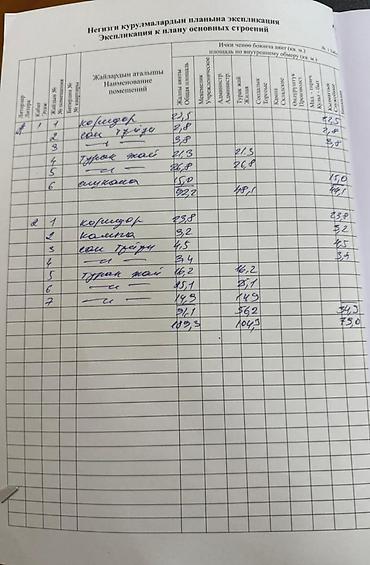 Негизги курулмалардын планына экспликация
Экспликация к плану основных строений
Ички ченөө боюнча аянт (кв. м.)
площадь по внутреннему обмеру (кв. м.)
Литерлер Литера
Кабат Этаж
Жайдын № № помещения
Батирдин № № квартиры
Жайлардын аталышы
Наименование
помещений
Жалпы аянты Общая площадь
Мекемелик Учрежденческое
Администр. Администр.
Турак жай Жилая
Соодалык Торговое
Кампа Складское
Өндүрүштүк Производст.
1 1 коридор 23,5 23,5
2 сан түйүн 2,8 2,8
3 —"— 3,8 3,8
4 турак жай 21,3 21,3
5 —"— 26,8 26,8
6 ашкана 15,0 15,0
48,1
2 1 коридор 23,8 23,8
2 кампа 3,2 3,2
3 сан түйүн 4,5 4,5
4 —"— 3,4 3,4
5 турак жай 16,2 16,2
6 —"— 25,1 25,1
7 —"— 14,9 14,9
91,1 56,2 34,9
104,3 79,0